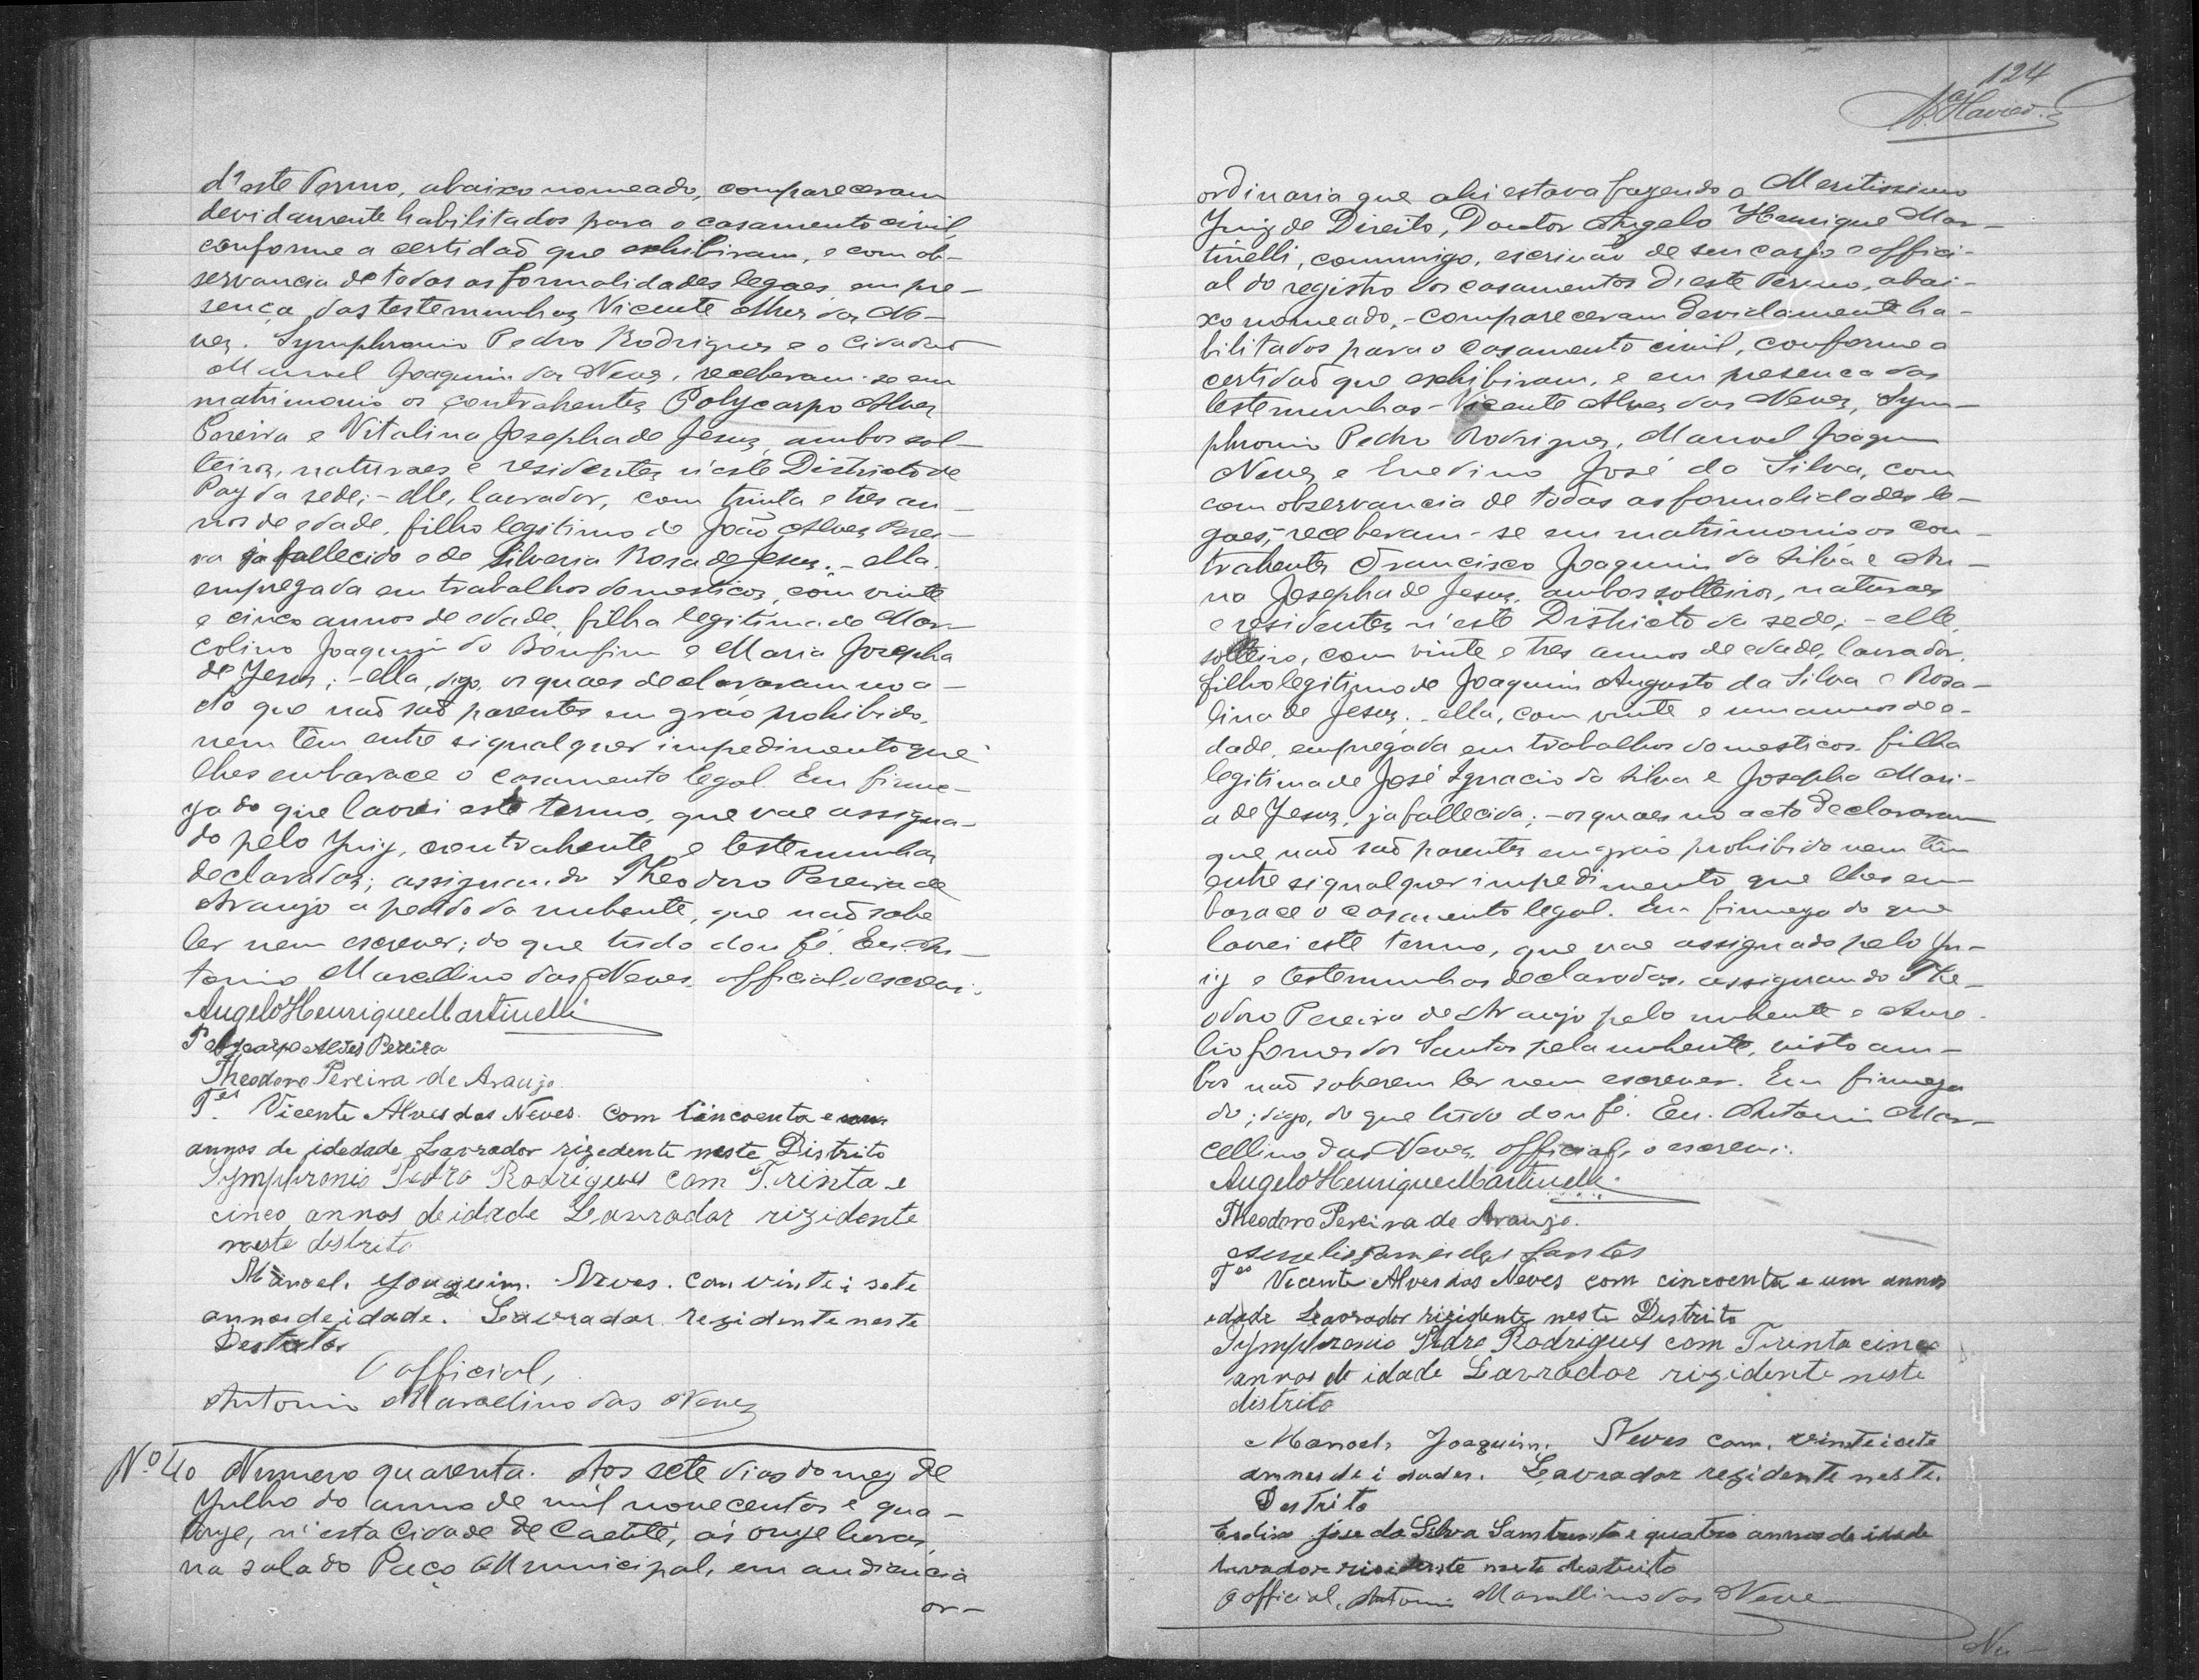 d'este Termo, abaixo nomeado, compareceram
devidamente habilitados para o casamento civil,
conforme a certidaõ que exhibiram, e com ob-
servancia de todas as formalidades legaes, em pre-
sença das testemunhas Vicente Alves das Ne-
ves. Symphronio Pedro Rodrigues e o Cidadaõ
Manoel Joaquim das Neves, receberam-se em
matrimonio os contrahentes Polycarpo Alves
Pereira e Vitalina Josepha de Jesus, ambos sol-
teiros, naturaes e residentes n'este Districto de
Paz da sede; - elle, lavrador, com trinta e tres an-
nos de edade, filho legitimo de João Alves Perei-
ra já fallecido e de Silveria Rosa de Jesus. - ella,
empregada em trabalhos domesticos, com vinte
e cinco annos de edade, filha legitima de Mar-
colino Joaquim do Bomfim e Maria Josepha
de Jesus; - ella, digo, os quaes declararam no a-
cto que naõ saõ parentes em gráo prohibido,
nem têm entre si qualquer impedimento que
lhes embarace o casamento legal. Em firme-
za do que lavrei este termo, que vae assigna-
do pelo Juiz, contrahente, e testemunhas
declaradas; assignando Theodoro Pereira de
Araujo a pedido da nubente, que naõ sabe
ler nem escrever; do que tudo dou fé. Eu, An-
tonio Marcellino das Neves, official, o escrevi.
Angelo Henrique Martinelli
Polycarpo Alves Pereira
Theodoro Pereira de Araujo.
Tes Vicente Alves das Neves. com Cincoenta e um
annos de idedade Lavrador rizedente neste Distrito
Symphronio Pedro Rodrigues com Trinta e
cinco annos de idade Lavrador rizidente
neste distrito
Manoel. Joaquim. Neves. com vinte i sete
annos de idade. Lavrador rezidente neste
Destrito.
O official,
Antonio Marcellino das Neves
Nº 40 Numero quarenta. Aos sete dias do mez de
Julho do anno de mil novecentos e qua-
torze, n'esta Cidade de Caetité, ás onze horas,
na sala do Paço Municipal, em audiencia
or-
124
ordinaria que ahi estava fazendo o Meritissimo
Juiz de Direito, Doutor Angelo Henrique Mar-
tinelli, commigo, escrivaõ de seu cargo e offici-
al do registro dos casamentos d'este Termo, abai-
xo nomeado, - compareceram devidamente ha-
bilitados para o casamento civil, conforme a
certidaõ que exhibiram, e em presenca das
testemunhas - Vicente Alves das Neves, Sym-
phronio Pedro Rodrigues, Manoel Joaquim
Neves e Enedino José da Silva, com
com observancia de todas as formalidades le-
gaes, - receberam-se em matrimonio os con-
trahentes Francisco Joaquim da Silva e An-
na Josepha de Jesus, ambos solteiros, naturaes
e residentes n'este Districto da sede; - elle,
solteiro, com vinte e tres annos de edade, lavrador,
filho legitimo de Joaquim Augusto da Silva e Rosa-
lina de Jesus. - ella, com vinte e um annos de e-
dade, empregada em trabalhos domesticos, filha
legitima de José Ignacio da Silva e Josepha Mari-
a de Jesus, já fallecida; - os quaes no acto declararam
que naõ saõ parentes em gráo prohibido nem têm
entre si qualquer impedimento que lhes em-
barace o casamento legal. Em firmeza do que
lavrei este termo, que vae assignado pelo Ju-
iz e testemunhas declaradas, assignando The-
odoro Pereira de Araujo pelo nubente e Aure-
lio Gomes dos Santos pela nubente, visto am-
bos naõ saberem ler nem escrever. Em firmeza
do; digo, do que tudo dou fé. Eu, Antonio Mar-
cellino das Neves, official, o escrevi.
Angelo Henrique Martinelli.
Theodoro Pereira de Araujo.
Aurelio Gomes dos Santos
Tes Vicente Alves das Neves com cincoenta e um annos
edade Lavrador rizidente neste Distrito
Symphronio Pedro Rodrigues com Trinta cinco
annos de idade Lavrador rizidente neste
distrito
Manoel. Joaquim. Neves com. vinte i sete
annos de i dades. Lavrador rezidente neste.
Destrito
Enedino José da Silva Com trenta e quatro annos de idade
lavrador rizidente neste destrito
O official, Antonio Marcellino das Neves
Nu-